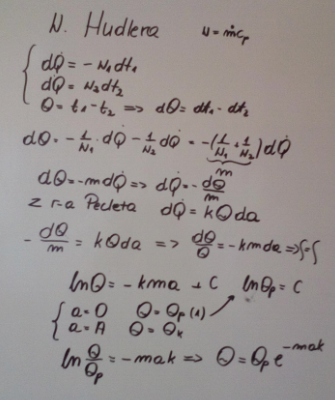 N. Hudlera W = ṁcₚ
dQ̇ = -W₁dt₁
dQ̇ = W₂dt₂
Θ = t₁-t₂ => dΘ = dt₁-dt₂
dΘ = -1/W₁ · dQ̇ - 1/W₂ dQ̇ = -(1/W₁ + 1/W₂)dQ̇
m
dΘ = -mdQ̇ => dQ̇ = -dΘ/m
z r-a Pecleta dQ̇ = kΘda
-dΘ/m = kΘda => dΘ/Θ = -kmda => ∫=∫
lnΘ = -kma + C lnΘₚ = C
a=0 Θ=Θₚ (1)
a=A Θ=Θₖ
ln Θ/Θₚ = -mak => Θ = Θₚe^-mak